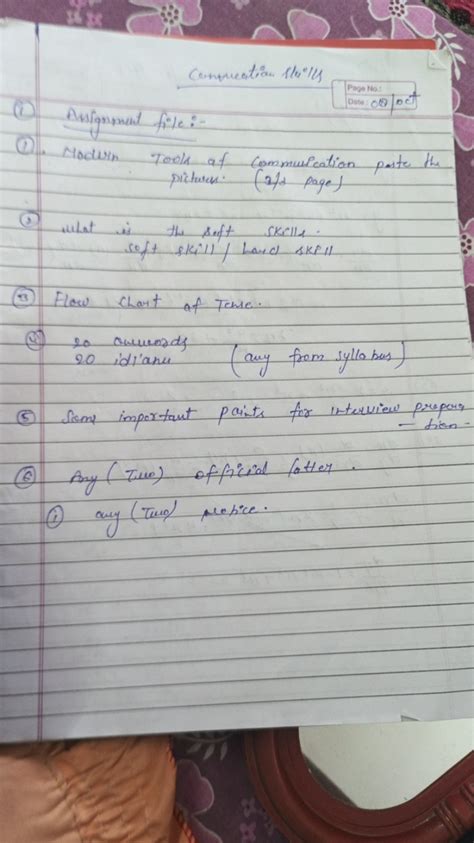 Commucation skills
Page No.:
Date: 08/oct
① Assignment file:-
① Modern Tools of Communication paste the
pictures. (2/3 page)
② what is the soft skills.
soft skill / hard skill
③ Flow chart of Tense.
④ 20
20 (any from syllabus)
⑤ Some important points for interview prepara
- tion -
⑥ Any (Two) official letter.
① any (Two) notice.